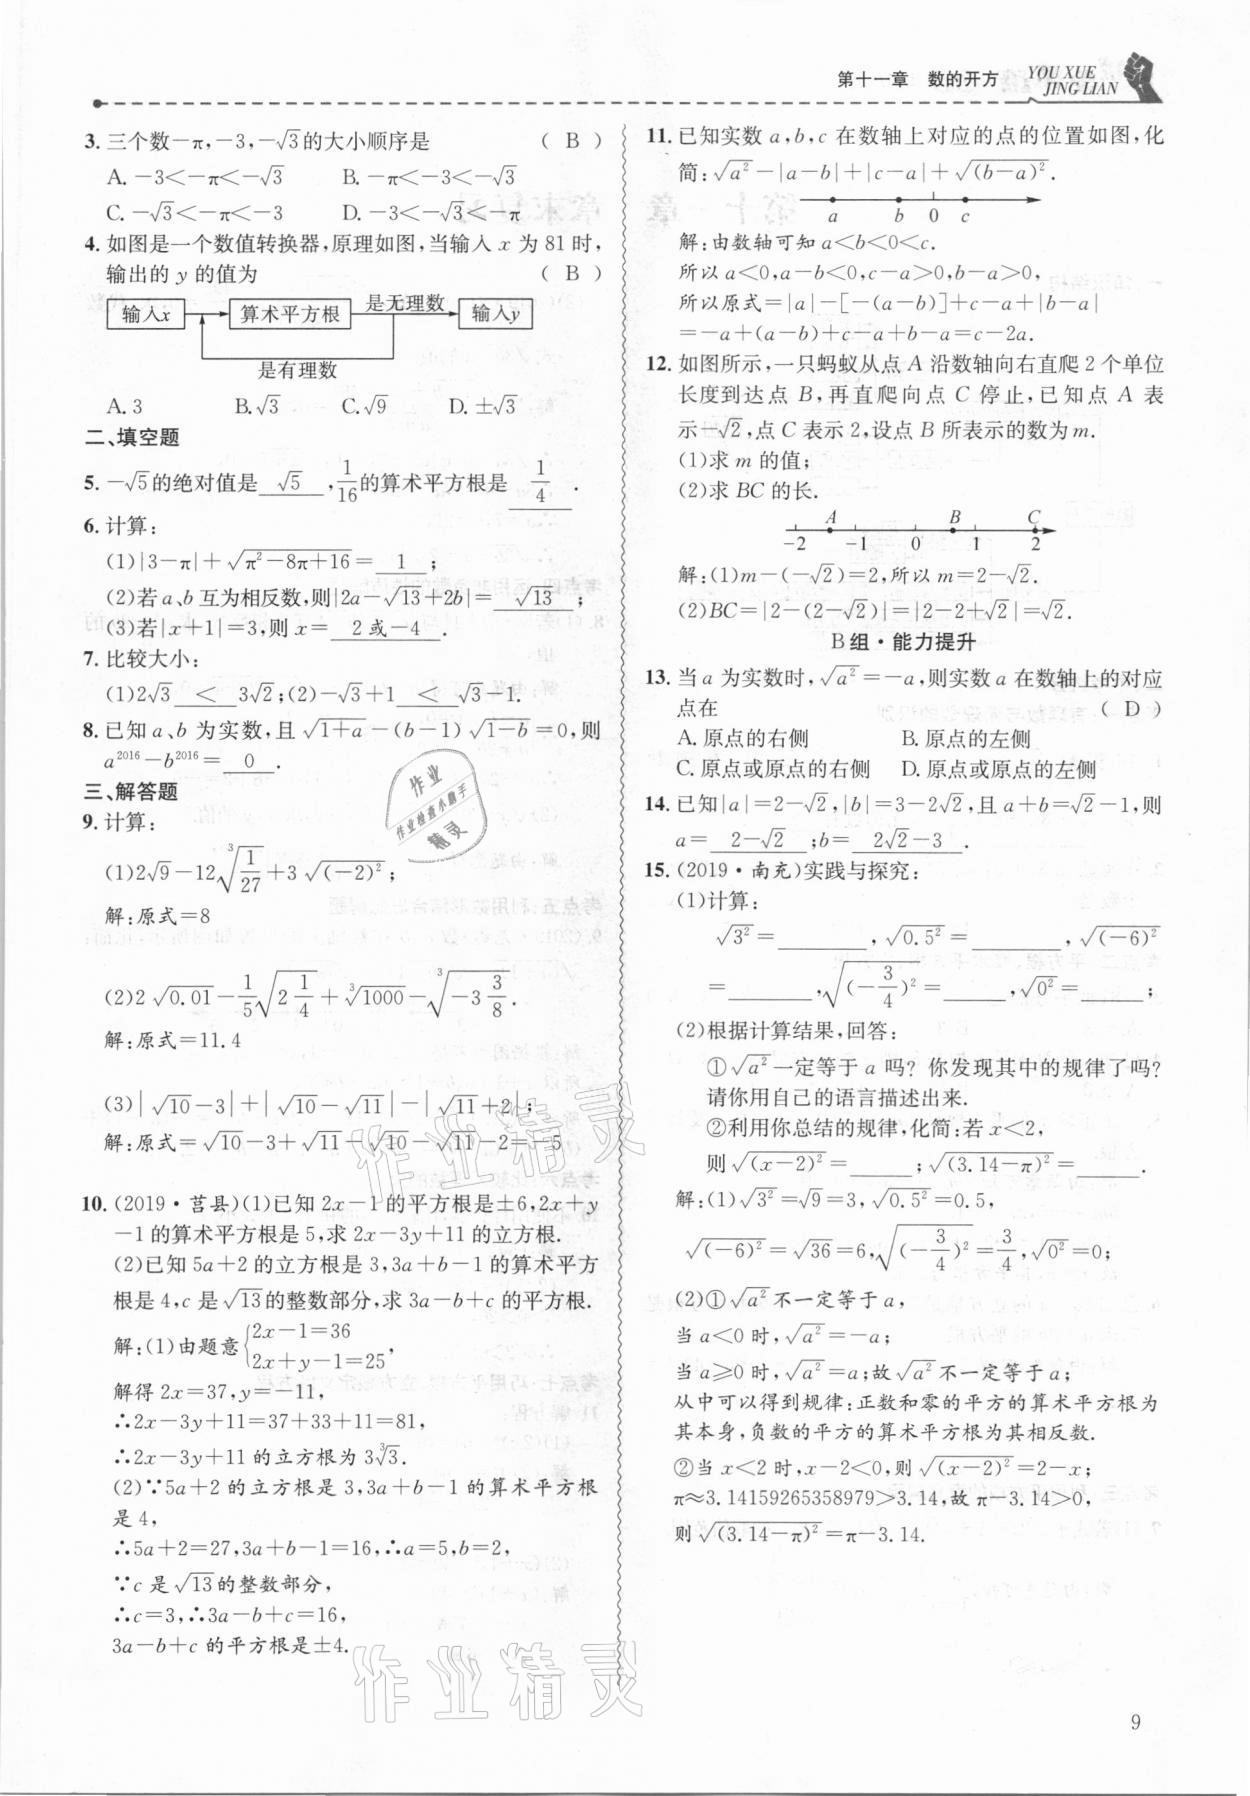 第十一章 数的开方
YOU XUE
JING LIAN
3. 三个数-π,-3,-√3的大小顺序是 ( B )
A. -3<-π<-√3 B. -π<-3<-√3
C. -√3<-π<-3 D. -3<-√3<-π
4. 如图是一个数值转换器,原理如图,当输入 x 为 81 时,
输出的 y 的值为 ( B )
输入x 算术平方根 是无理数 输入y
是有理数
A. 3 B. √3 C. √9 D. ±√3
二、填空题
5. -√5的绝对值是 √5 ,1/16的算术平方根是 1/4 .
6. 计算:
(1)|3-π|+√(π²-8π+16)= 1 ;
(2)若a、b互为相反数,则|2a-√13+2b|= √13 ;
(3)若|x+1|=3,则 x= 2或-4 .
7. 比较大小:
(1)2√3 < 3√2;(2)-√3+1 < √3-1.
8. 已知 a、b 为实数,且 √(1+a)-(b-1)√(1-b)=0,则
a²⁰¹⁶-b²⁰¹⁶= 0 .
三、解答题
9. 计算:
(1)2√9-12∛(1/27)+3√((-2)²);
解:原式=8
(2)2√0.01-1/5√(2 1/4)+∛1000-∛(-3 3/8).
解:原式=11.4
(3)|√10-3|+|√10-√11|-|√11+2|;
解:原式=√10-3+√11-√10-√11-2=-5
10. (2019·莒县)(1)已知 2x-1 的平方根是±6,2x+y
-1 的算术平方根是 5,求 2x-3y+11 的立方根.
(2)已知 5a+2 的立方根是 3,3a+b-1 的算术平方
根是 4,c 是√13的整数部分,求 3a-b+c 的平方根.
解:(1)由题意{2x-1=36
2x+y-1=25,
解得 2x=37,y=-11,
∴2x-3y+11=37+33+11=81,
∴2x-3y+11 的立方根为 3∛3.
(2)∵5a+2 的立方根是 3,3a+b-1 的算术平方根
是 4,
∴5a+2=27,3a+b-1=16,∴a=5,b=2,
∵c 是√13的整数部分,
∴c=3,∴3a-b+c=16,
3a-b+c 的平方根是±4.
11. 已知实数 a,b,c 在数轴上对应的点的位置如图,化
简:√(a²)-|a-b|+|c-a|+√((b-a)²).
a b 0 c
解:由数轴可知 a<b<0<c.
所以 a<0,a-b<0,c-a>0,b-a>0,
所以原式=|a|-[-(a-b)]+c-a+|b-a|
=-a+(a-b)+c-a+b-a=c-2a.
12. 如图所示,一只蚂蚁从点 A 沿数轴向右直爬 2 个单位
长度到达点 B,再直爬向点 C 停止,已知点 A 表
示-√2,点 C 表示 2,设点 B 所表示的数为 m.
(1)求 m 的值;
(2)求 BC 的长.
A B C
-2 -1 0 1 2
解:(1)m-(-√2)=2,所以 m=2-√2.
(2)BC=|2-(2-√2)|=|2-2+√2|=√2.
B组·能力提升
13. 当 a 为实数时,√(a²)=-a,则实数 a 在数轴上的对应
点在 ( D )
A. 原点的右侧 B. 原点的左侧
C. 原点或原点的右侧 D. 原点或原点的左侧
14. 已知|a|=2-√2,|b|=3-2√2,且 a+b=√2-1,则
a= 2-√2 ;b= 2√2-3 .
15. (2019·南充)实践与探究:
(1)计算:
√(3²)=______,√(0.5²)=______,√((-6)²)
=______,√((-3/4)²)=______,√(0²)=______;
(2)根据计算结果,回答:
①√(a²)一定等于 a 吗? 你发现其中的规律了吗?
请你用自己的语言描述出来.
②利用你总结的规律,化简:若 x<2,
则√((x-2)²)=______;√((3.14-π)²)=______.
解:(1)√(3²)=√9=3,√(0.5²)=0.5,
√((-6)²)=√36=6,√((-3/4)²)=3/4,√(0²)=0;
(2)①√(a²)不一定等于 a,
当 a<0 时,√(a²)=-a;
当 a≥0 时,√(a²)=a;故√(a²)不一定等于 a;
从中可以得到规律:正数和零的平方的算术平方根为
其本身,负数的平方的算术平方根为其相反数.
②当 x<2 时,x-2<0,则√((x-2)²)=2-x;
π≈3.14159265358979>3.14,故 π-3.14>0,
则√((3.14-π)²)=π-3.14.
作业
作业检查小助手
精灵
作业精灵
作业精灵
9